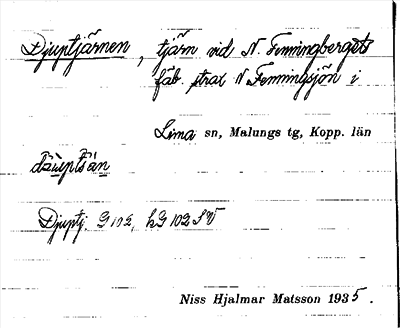 Djuptjärnen, tjärn vid N. Fenningbergets
fäb. strax N Fenningsjön i
Lima sn, Malungs tg, Kopp. län
Djuptj. G 102, hG 102 SV
Niss Hjalmar Matsson 1935.